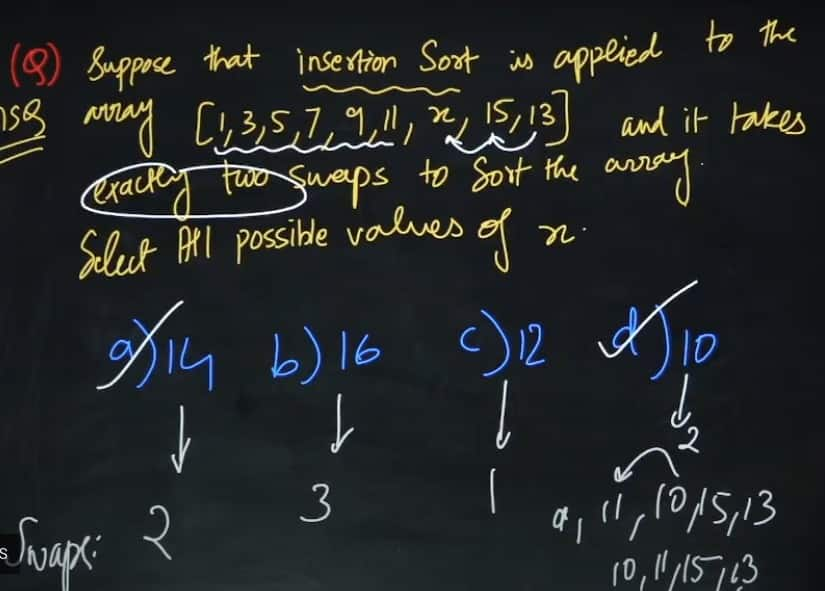 (Q) Suppose that insertion Sort is applied to the
MSQ array [1,3,5,7,9,11, x, 15,13] and it takes
exactly two swaps to sort the array.
Select All possible values of x.
a) 14 b) 16 c) 12 d) 10
2
9, 11, 10, 15, 13
Swaps: 2 3 1
10, 11, 15, 13